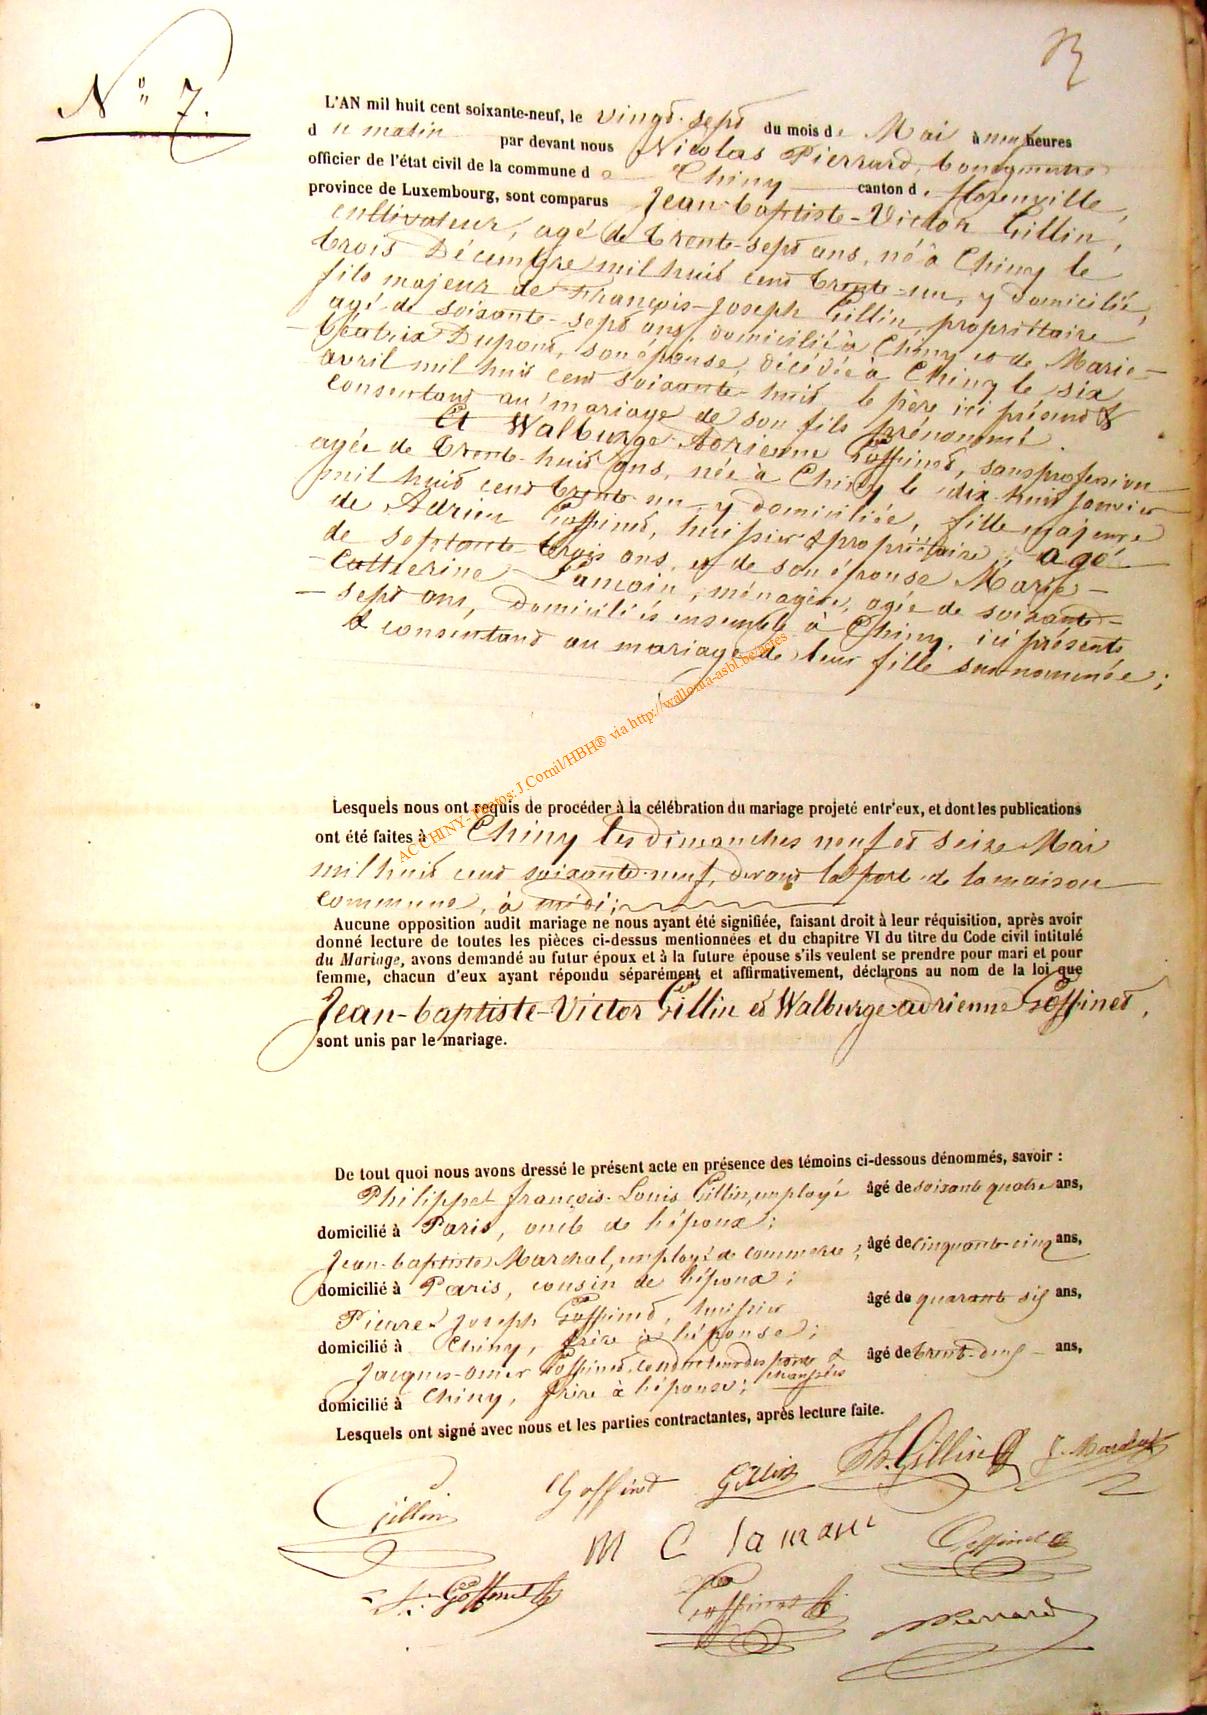 N° 7.
L'AN mil huit cent soixante-neuf, le vingt-sept du mois de Mai à neuf heures
du matin par devant nous Nicolas Pierrard, bourgmestre
officier de l'état civil de la commune de Chiny canton de florenville,
province de Luxembourg, sont comparus Jean-baptiste-Victor Gillin,
cultivateur, agé de trente-sept ans, né à Chiny le
trois Décembre mil huit cent trente-un, y domicilié,
fils majeur de François-Joseph Gillin, propriétaire
agé de soixante-sept ans, domicilié à Chiny et de Marie-
béatrix Dupont, son épouse, décédée à Chiny le six
avril mil huit cent soixante-huit le père ici présent &
consentant au mariage de son fils prénommé
Et Walburge Adrienne Goffinet, sans profession
agée de trente-huit ans, née à Chiny le dix-huit Janvier
mil huit cent trente-un, y domiciliée, fille majeure
de Adrien Goffinet, huissier & propriétaire, agé
de septante trois ans, et de son épouse Marie-
Catherine Lamoin, ménagère, agée de soixante-
sept ans, domiciliés ensemble à Chiny, ici présents
& consentant au mariage de leur fille sus-nommée;
Lesquels nous ont requis de procéder à la célébration du mariage projeté entr'eux, et dont les publications
ont été faites à Chiny les dimanches neuf et seize Mai
mil huit cent soixante-neuf, devant la porte de la maison
commune, à midi;
Aucune opposition audit mariage ne nous ayant été signifiée, faisant droit à leur réquisition, après avoir
donné lecture de toutes les pièces ci-dessus mentionnées et du chapitre VI du titre du Code civil intitulé
du Mariage, avons demandé au futur époux et à la future épouse s'ils veulent se prendre pour mari et pour
femme, chacun d'eux ayant répondu séparément et affirmativement, déclarons au nom de la loi que
Jean-baptiste-Victor Gillin et Walburge-adrienne Goffinet,
sont unis par le mariage.
De tout quoi nous avons dressé le présent acte en présence des témoins ci-dessous dénommés, savoir :
Philippe françois-Louis Gillin, employé âgé de soixante quatre ans,
domicilié à Paris, oncle de l'époux;
Jean-baptiste Marchal, employé de commerce; âgé de cinquante-cinq ans,
domicilié à Paris, cousin de l'époux;
Pierre Joseph Goffinet, huissier âgé de quarante six ans,
domicilié à Chiny, frère à l'épouse;
Jacques-omer Goffinet, conducteur des ponts & chaussées âgé de trente-deux ans,
domicilié à Chiny, frère à l'épouse;
Lesquels ont signé avec nous et les parties contractantes, après lecture faite.
Gillin Goffinet Gillin Ph. Gillin J. Marchal
M C lamoin Goffinet
J. Goffinet Goffinet Pierrard
AC CHINY - Photos: J.Cornil/HBH® via http://wallonia-asbl.be/actes